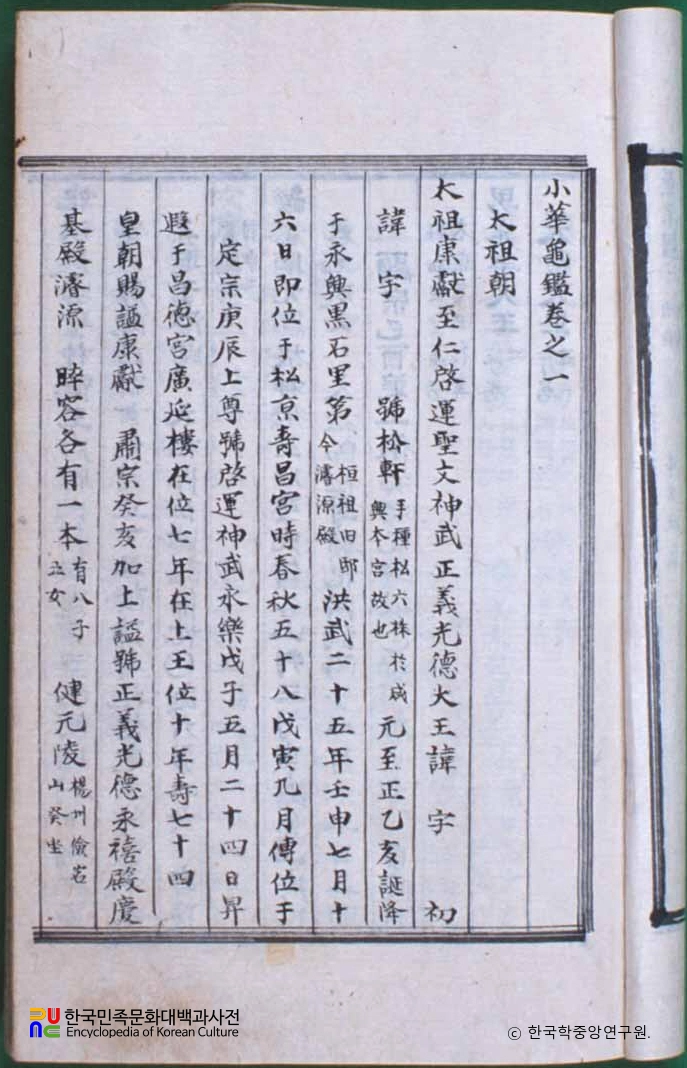 小華龜鑑卷之一
太祖朝
太祖康獻至仁啓運聖文神武正義光德大王諱 字 初
諱 字 號松軒 手種松六株於咸興本宮故也 元至正乙亥誕降
于永興黑石里第 今桓祖旧邸濬源殿 洪武二十五年壬申七月十
六日即位于松京壽昌宮時春秋五十八戊寅九月傳位于
定宗庚辰上尊號啓運神武永樂戊子五月二十四日昇
遐于昌德宮廣延樓在位七年在上王位十年壽七十四
皇朝賜謚康獻 肅宗癸亥加上謚號正義光德永禧殿慶
基殿濬源 睟容各有一本 有八子五女 健元陵 楊州儉岩山癸坐
한국민족문화대백과사전
Encyclopedia of Korean Culture
© 한국학중앙연구원.